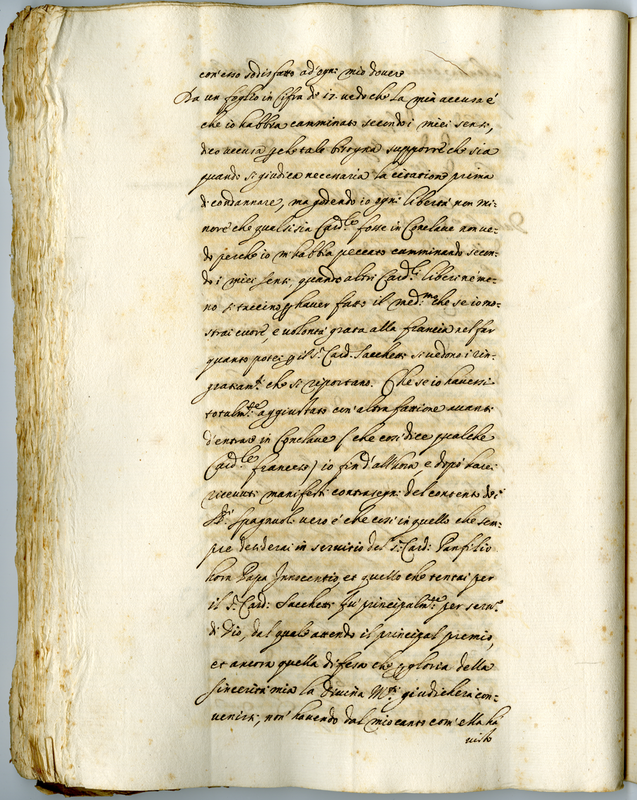 con esso sodisfatto ad ogni mio dovere
Da un foglio in Cifra de 17. vedo che la mia accusa é
che io habbia camminato secondo i miei sensi,
dico accusa perche tale bisogna supporre che sia
quando si giudica necessaria la citatione prima
di condannare, ma godendo io ogni libertà non mi-
nore che qualsisia Card.le fosse in Conclave non ve-
do perche io m'habbia peccato camminando secon-
do i miei sensi, quando altri Card.li liberi né me-
no si taccino p hauer fatto il med.mo che se io mo-
strai cuore, e volontà grata alla francia nel far
quanto potei p il S.r Card. Sacchetti si vedono i rin-
gratiam.ti che si riportano. Che se io havessi
totalm.te aggiustato con altra fattione avanti
d'entrare in Conclave (che così dice qualche
Card.le francese) io fin d'allhora, e dopò have
ricevuti manifesti contrasegni del contento de i
SS.ri Spagnuoli vero é che così in quello che sem-
pre desiderai in servitio del S.r Card: Panfilio
hora Papa Innocentio, et quello che tentai per
il S.r Card: Sacchetti fu principalm.te per serv.o
di Dio, dal quale attendo il principal premio,
et ancora quella difesa che p gloria della
sincerità mia la Divina M.tà giudicherà con-
venirsi, non havendo dal mio canto com' ella hà
visto